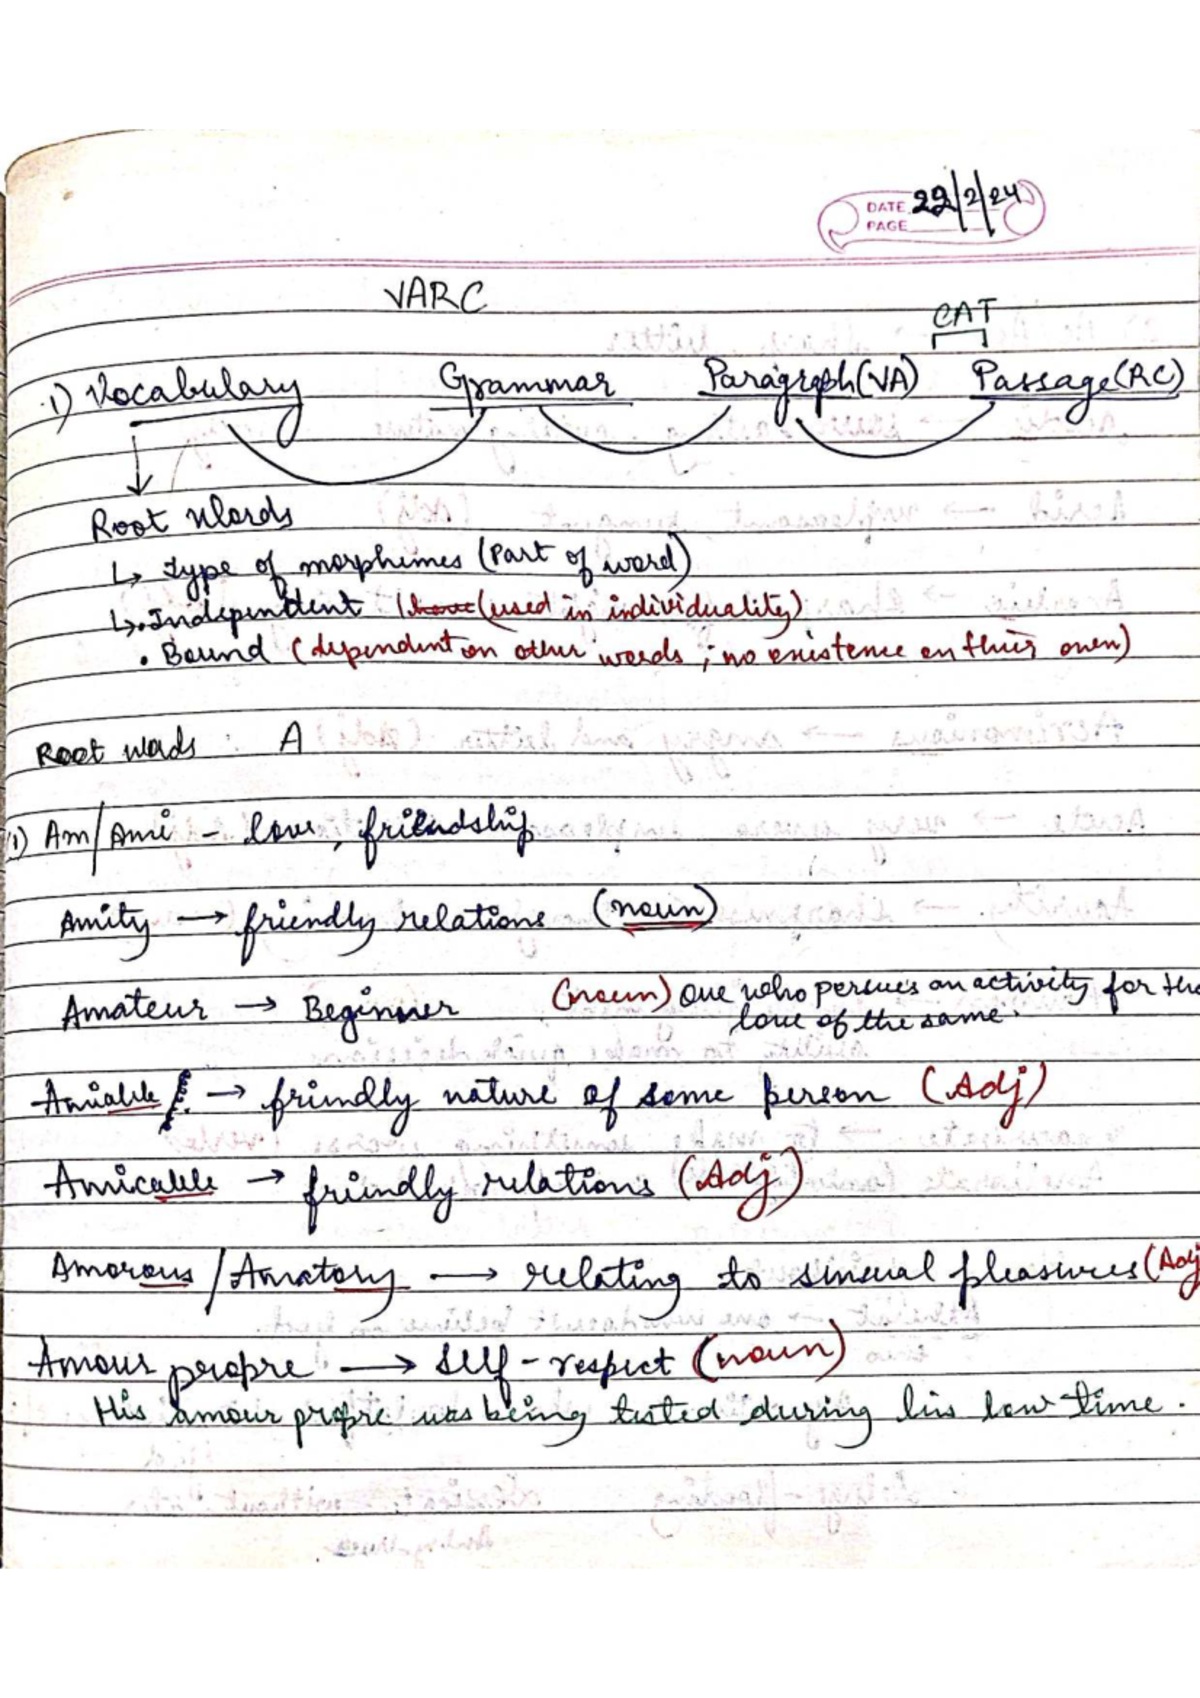 DATE 22/2/24
PAGE
VARC
CAT
1) Vocabulary Grammar Paragraph(VA) Passage(RC)
Root Words
↳ type of morphimes (Part of word)
↳ • Independent (used in individuality)
• Bound (dependent on other words ; no existence on their own)
Root words : A
1) Am/Ami - love, friendship
Amity → friendly relations (noun)
Amateur → Beginner (noun) one who persues an activity for the
love of the same.
Amiable → friendly nature of some person (Adj)
Amicable → friendly relations (Adj)
Amorous / Amatory → relating to sinsual pleasures (Adj
Amour propre → self-respect (noun)
His amour propre was being tested during his low time.